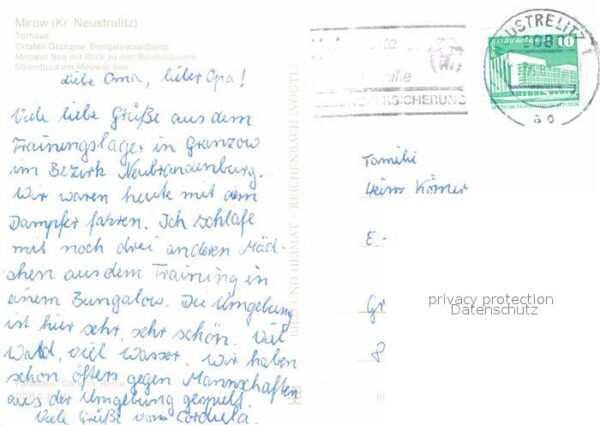 Mirow (Kr. Neustrelitz)
Torhaus
Ortsteil Granzow, Bungalowsiedlung
Mirower See mit Blick zu den Bootshäusern
Strandbad am Mirower See
Liebe Oma, lieber Opa!
Viele liebe Grüße aus dem
Trainingslager in Granzow
im Bezirk Neubrandenburg.
Wir waren heute mit dem
Dampfer fahren. Ich schlafe
mit noch drei anderen Mäd-
chen aus dem Training in
einem Bungalow. Die Umgebung
ist hier sehr, sehr schön. Viel
Wald, viel Wasser. Wir haben
schon öfters gegen Mannschaften
aus der Umgebung gespielt.
Viele Grüße von Cordula.
BILD UND HEIMAT REICHENBACH (VOGTL)
VERSICHERUNG
NEUSTRELITZ 1
10
Familie
Heinz Körner
E-
Gr
P
privacy protection
Datenschutz